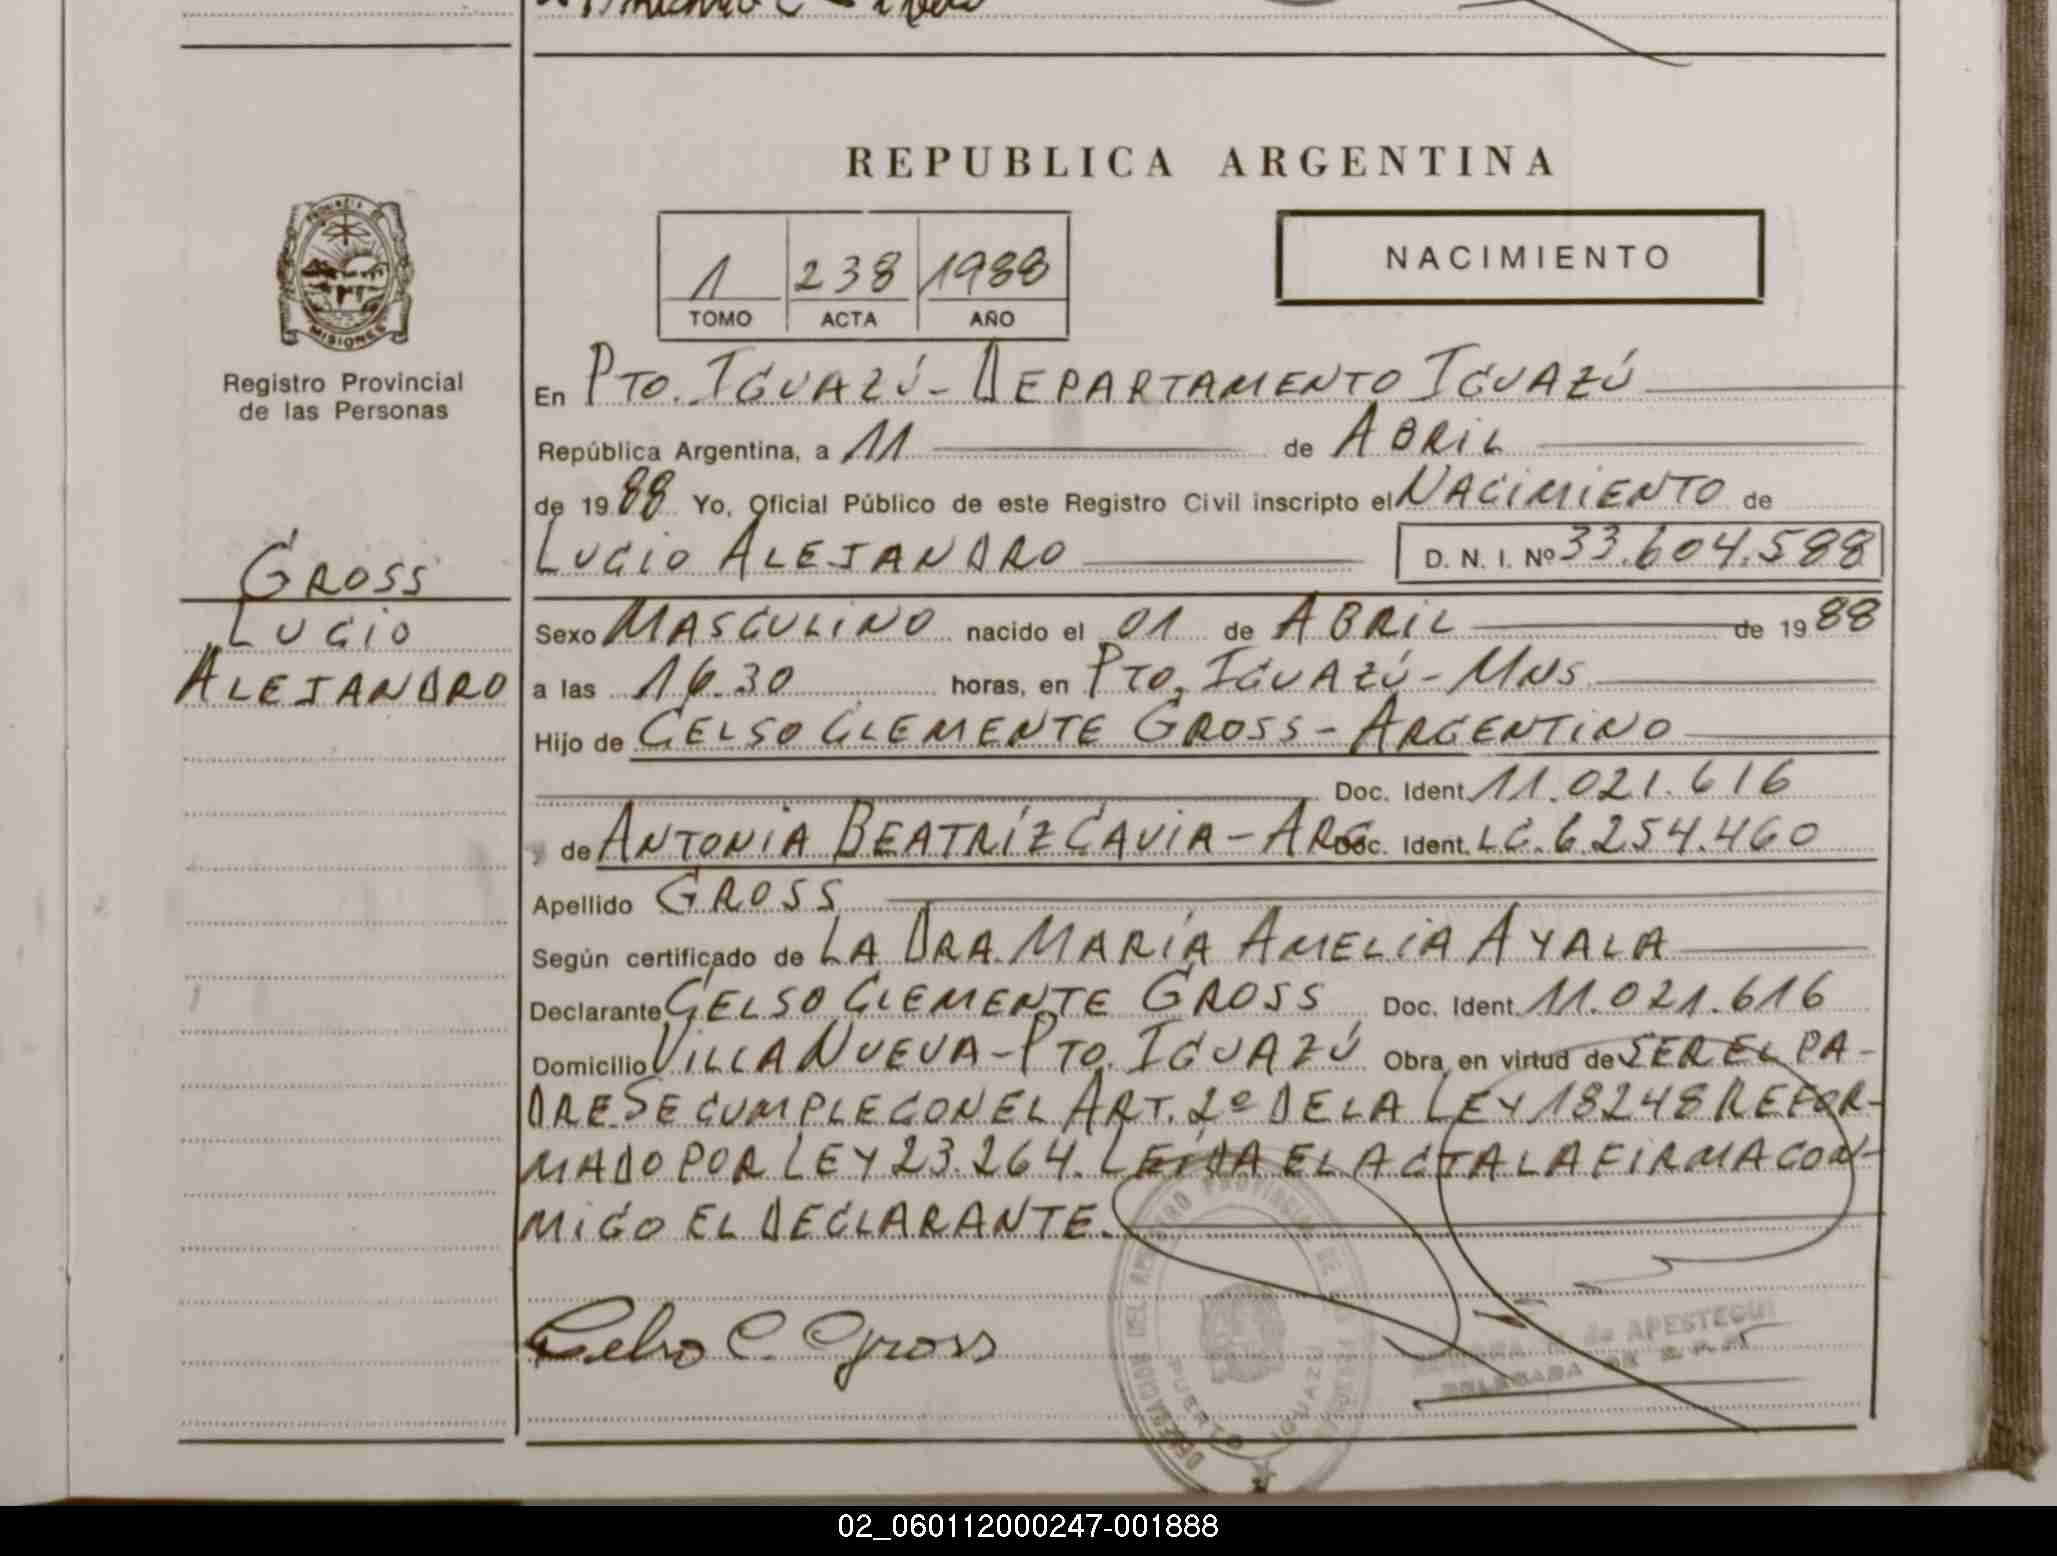 REPUBLICA ARGENTINA
PROVINCIA DE
MISIONES
Registro Provincial
de las Personas
1 238 1988
TOMO ACTA AÑO
NACIMIENTO
En PTO. IGUAZÚ - DEPARTAMENTO IGUAZÚ
República Argentina, a 11 de ABRIL
de 19 88 Yo, Oficial Público de este Registro Civil inscripto el NACIMIENTO de
LUCIO ALEJANDRO D. N. I. Nº 33.604.588
GROSS
LUCIO
ALEJANDRO
Sexo MASCULINO nacido el 01 de ABRIL de 19 88
a las 16.30 horas, en PTO. IGUAZÚ - MNS
Hijo de CELSO CLEMENTE GROSS - ARGENTINO
Doc. Ident. 11.021.616
y de ANTONIA BEATRÍZ CAVIA - ARG Doc. Ident. LC. 6.254.460
Apellido GROSS
Según certificado de LA DRA. MARÍA AMELIA AYALA
Declarante CELSO CLEMENTE GROSS Doc. Ident. 11.021.616
Domicilio VILLA NUEVA - PTO. IGUAZÚ Obra en virtud de SER EL PA-
DRE SE CUMPLE CON EL ART. 2º DE LA LEY 18248 REFOR-
MADO POR LEY 23.264. LEÍDA EL ACTA LA FIRMA CON-
MIGO EL DECLARANTE.
Celso C. Gross
DELEGACION DEL REGISTRO PROVINCIAL DE LAS PERSONAS
PUERTO IGUAZU
de APESTEGUI
DELEGADA DE R. P. P.
02_060112000247-001888